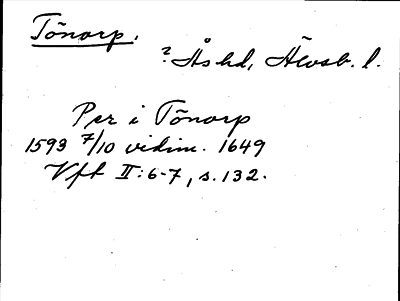 Tõnarp.
? Ås hd, Älvsb. l.
Per i Tõnarp
1593 7/10 vidim. 1649
Vft II:6-7, s. 132.